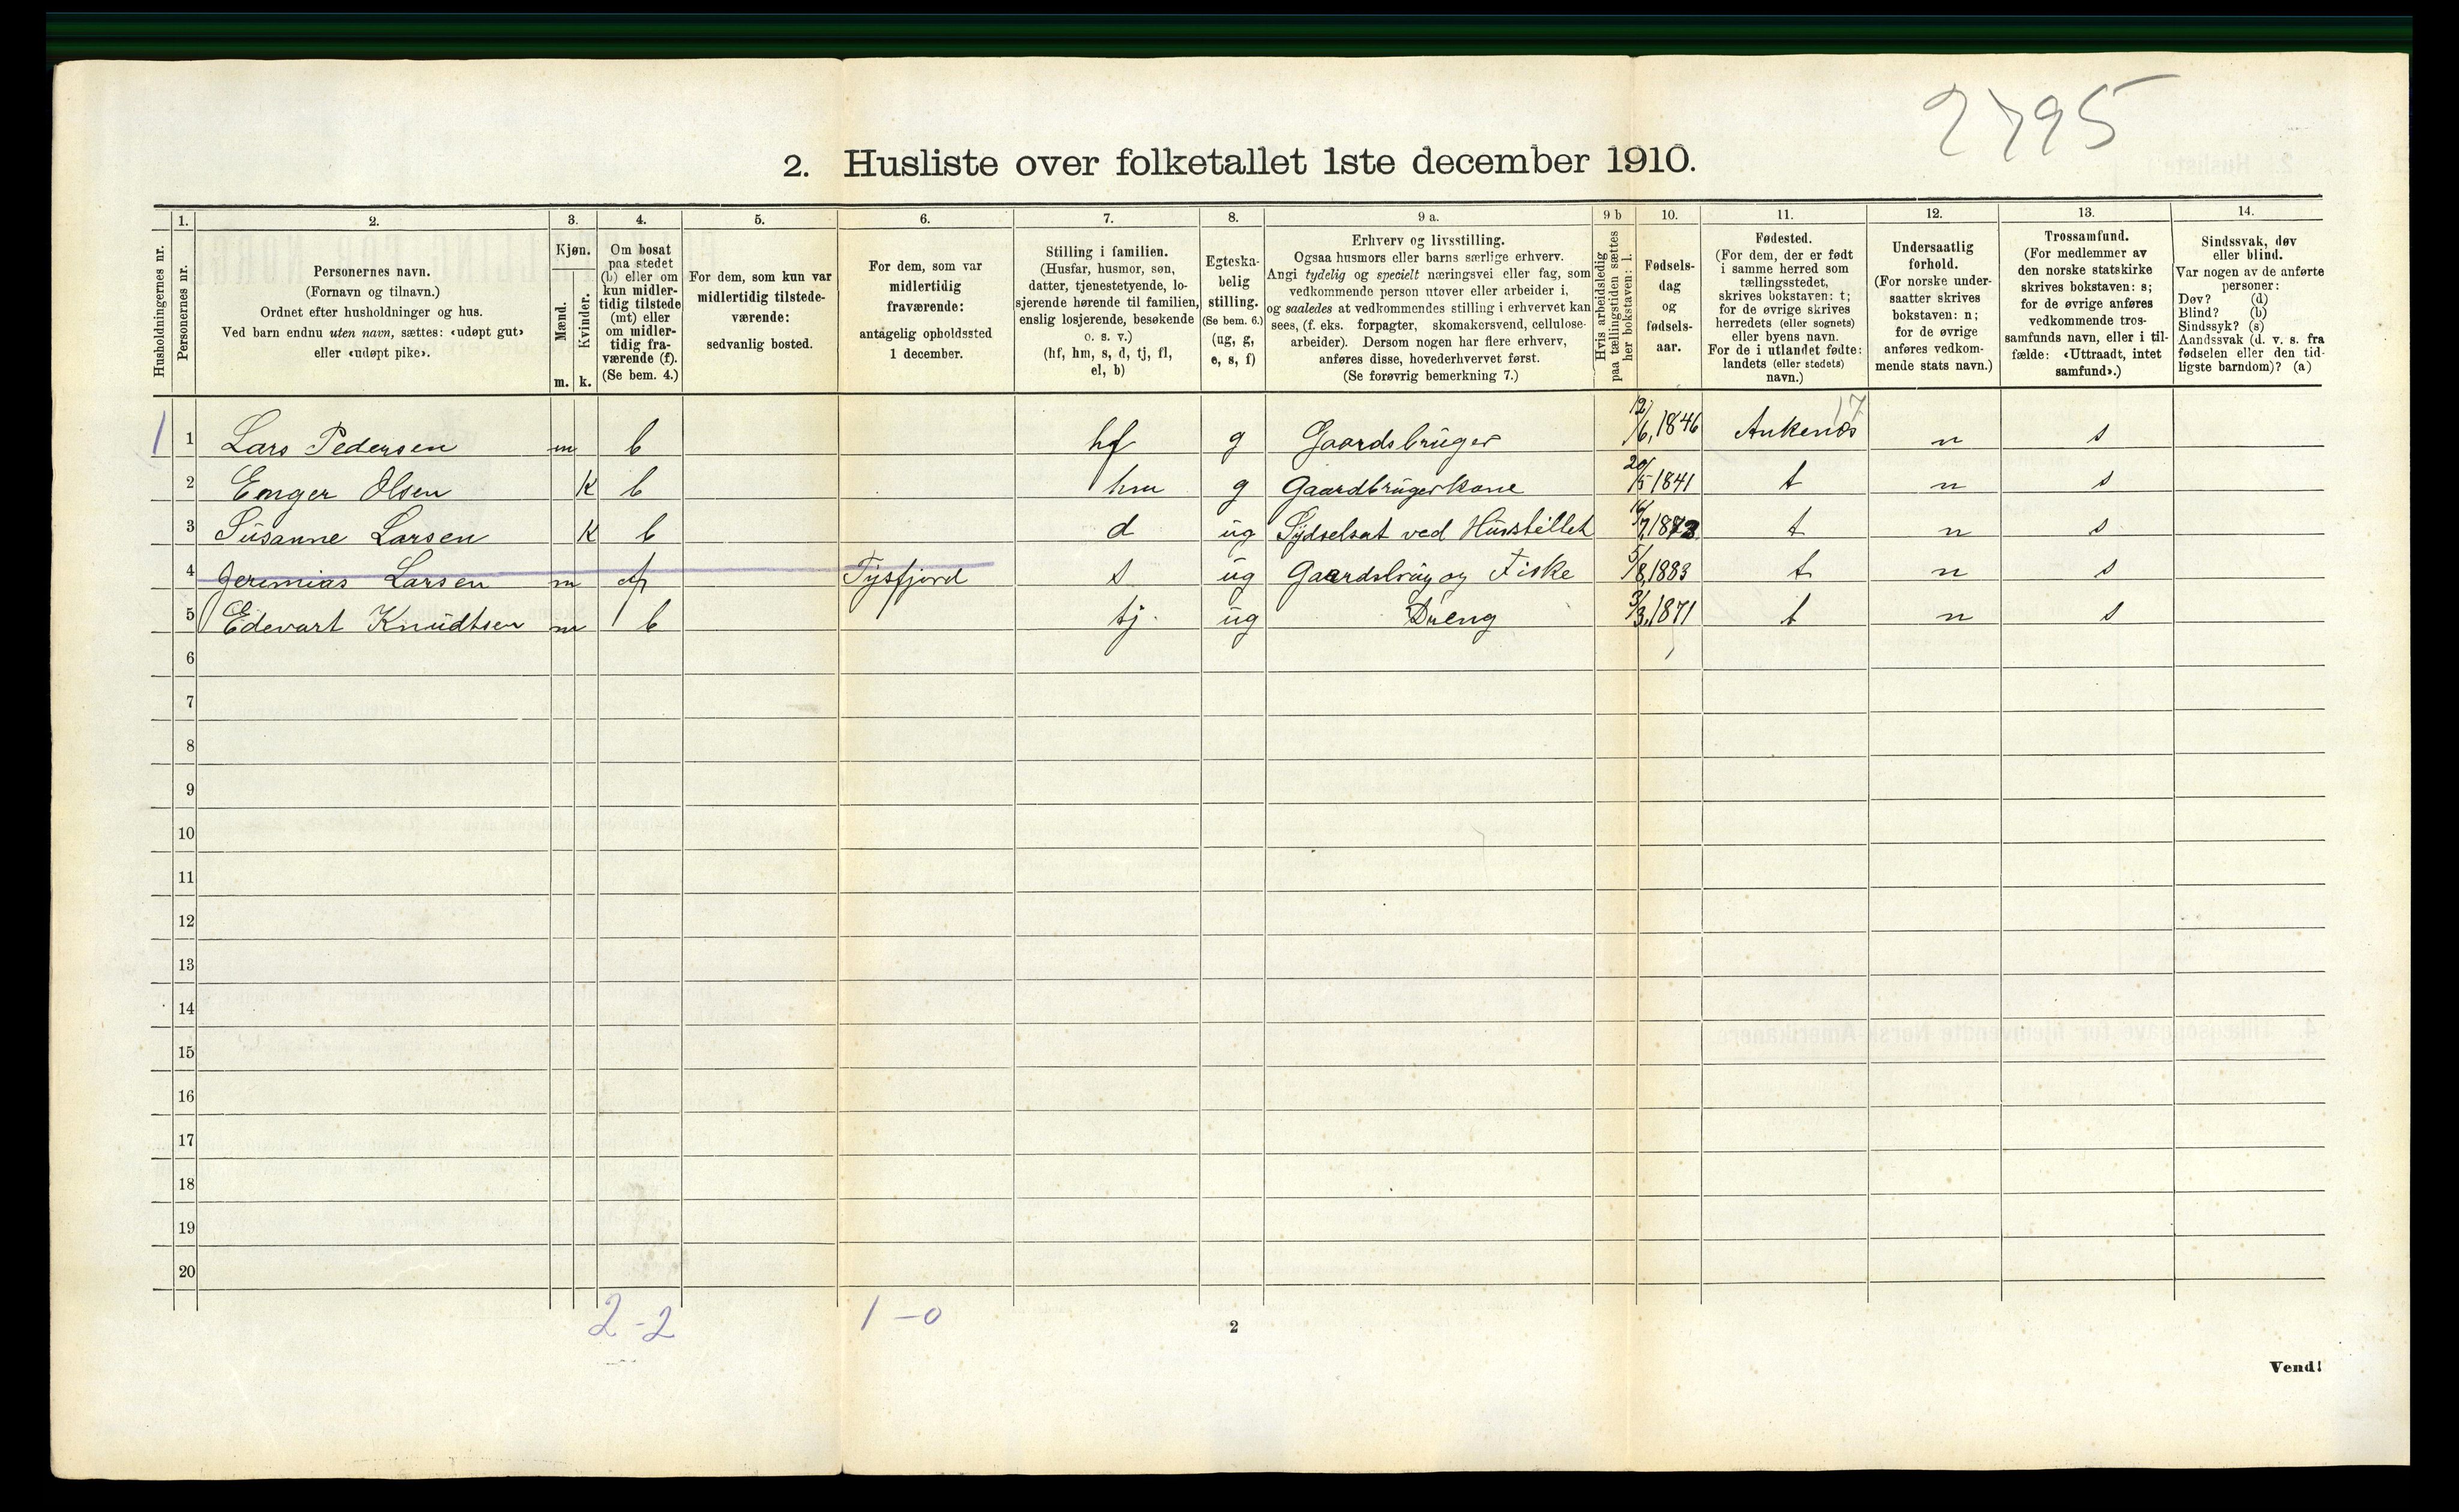 2795
2. Husliste over folketallet 1ste december 1910.
Husholdningernes nr.
1.
Personernes nr.
2.
Personernes navn.
(Fornavn og tilnavn.)
Ordnet efter husholdninger og hus.
Ved barn endnu uten navn, sættes: «udøpt gut»
eller «udøpt pike».
3.
Kjøn.
Mænd.
Kvinder.
m. k.
4.
Om bosat
paa stedet
(b) eller om
kun midler-
tidig tilstede
(mt) eller
om midler-
tidig fra-
værende (f).
(Se bem. 4.)
5.
For dem, som kun var
midlertidig tilstede-
værende:
sedvanlig bosted.
6.
For dem, som var
midlertidig
fraværende:
antagelig opholdssted
1 december.
7.
Stilling i familien.
(Husfar, husmor, søn,
datter, tjenestetyende, lo-
sjerende hørende til familien,
enslig losjerende, besøkende
o. s. v.)
(hf, hm, s, d, tj, fl,
el, b)
8.
Egteska-
belig
stilling.
(Se bem. 6.)
(ug, g,
e, s, f)
9 a.
Erhverv og livsstilling.
Ogsaa husmors eller barns særlige erhverv.
Angi tydelig og specielt næringsvei eller fag, som
vedkommende person utøver eller arbeider i,
og saaledes at vedkommendes stilling i erhvervet kan
sees, (f. eks. forpagter, skomakersvend, cellulose-
arbeider). Dersom nogen har flere erhverv,
anføres disse, hovederhvervet først.
(Se forøvrig bemerkning 7.)
9 b
Hvis arbeidsledig
paa tællingstiden sættes
her bokstaven: l.
10.
Fødsels-
dag
og
fødsels-
aar.
11.
Fødested.
(For dem, der er født
i samme herred som
tællingsstedet,
skrives bokstaven: t;
for de øvrige skrives
herredets (eller sognets)
eller byens navn.
For de i utlandet fødte:
landets (eller stedets)
navn.)
12.
Undersaatlig
forhold.
(For norske under-
saatter skrives
bokstaven: n;
for de øvrige
anføres vedkom-
mende stats navn.)
13.
Trossamfund.
(For medlemmer av
den norske statskirke
skrives bokstaven: s;
for de øvrige anføres
vedkommende tros-
samfunds navn, eller i til-
fælde: «Uttraadt, intet
samfund».)
14.
Sindssvak, døv
eller blind.
Var nogen av de anførte
personer:
Døv? (d)
Blind? (b)
Sindssyk? (s)
Aandssvak (d. v. s. fra
fødselen eller den tid-
ligste barndom)? (a)
17
1 1 Lars Pedersen m b hf g Gaardsbruger 12/6, 1846 Ankenæs n s
2 Enger Olsen K b hm g Gaardbrugerkone 20/5 1841 t n s
3 Susanne Larsen K b d ug Sydselsat ved Husstellet 16/7, 1873 t n s
4 Jeremias Larsen m f Tysfjord s ug Gaardsbrug og Fiske 5/8, 1883 t n s
5 Edevart Knudtsen m b tj. ug Dreng 3/3, 1871 t n s
6
7
8
9
10
11
12
13
14
15
16
17
18
19
20
2-2 1-0
2
Vend!